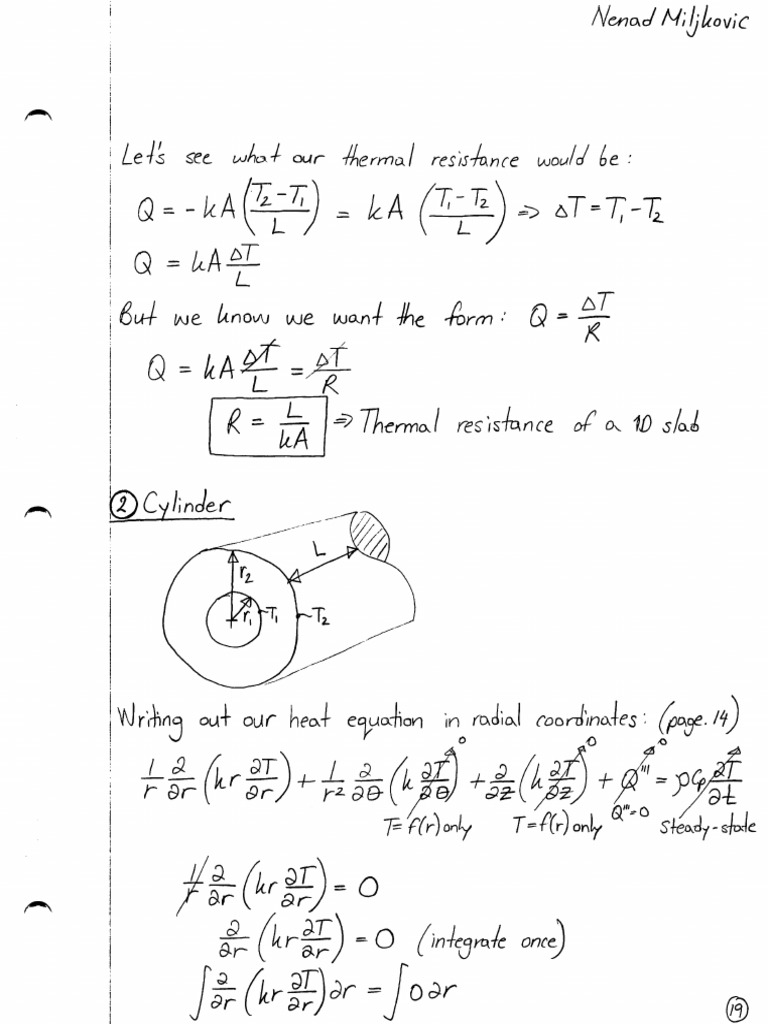 Nenad Miljkovic
Let's see what our thermal resistance would be:
Q = -kA(T₂-T₁/L) = kA(T₁-T₂/L) ⇒ ΔT = T₁-T₂
Q = kA ΔT/L
But we know we want the form: Q = ΔT/R
Q = kA ΔT/L = ΔT/R
R = L/kA ⇒ Thermal resistance of a 1D slab
② Cylinder
L
r₂
r₁ T₁ T₂
Writing out our heat equation in radial coordinates: (page. 14)
1/r ∂/∂r (kr ∂T/∂r) + 1/r² ∂/∂θ (k ∂T/∂θ)⁰ + ∂/∂z (k ∂T/∂z)⁰ + Q'''⁰ = ρCp ∂T/∂t
T=f(r) only T=f(r) only Q'''=0 steady-state
1/r ∂/∂r (kr ∂T/∂r) = 0
∂/∂r (kr ∂T/∂r) = 0 (integrate once)
∫ ∂/∂r (kr ∂T/∂r) ∂r = ∫ 0 ∂r
19